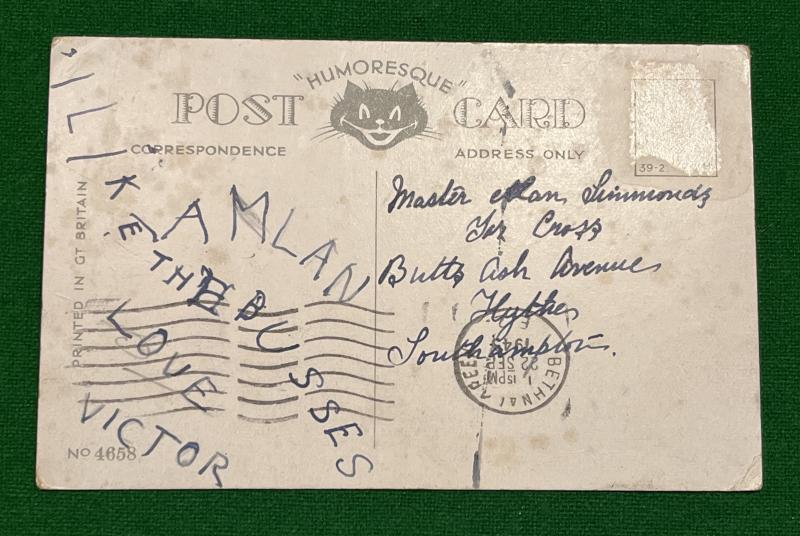 "HUMORESQUE"
POST CARD
CORRESPONDENCE
ADDRESS ONLY
39-2
PRINTED IN GT BRITAIN
I LIKE THE BUSSES
LOVE
VICTOR
Nº 4658
Master Alan Simmonds
Cross
Butts Ash Avenue
Hythe
Southampton.
BETHNAL GREEN
22 SEP